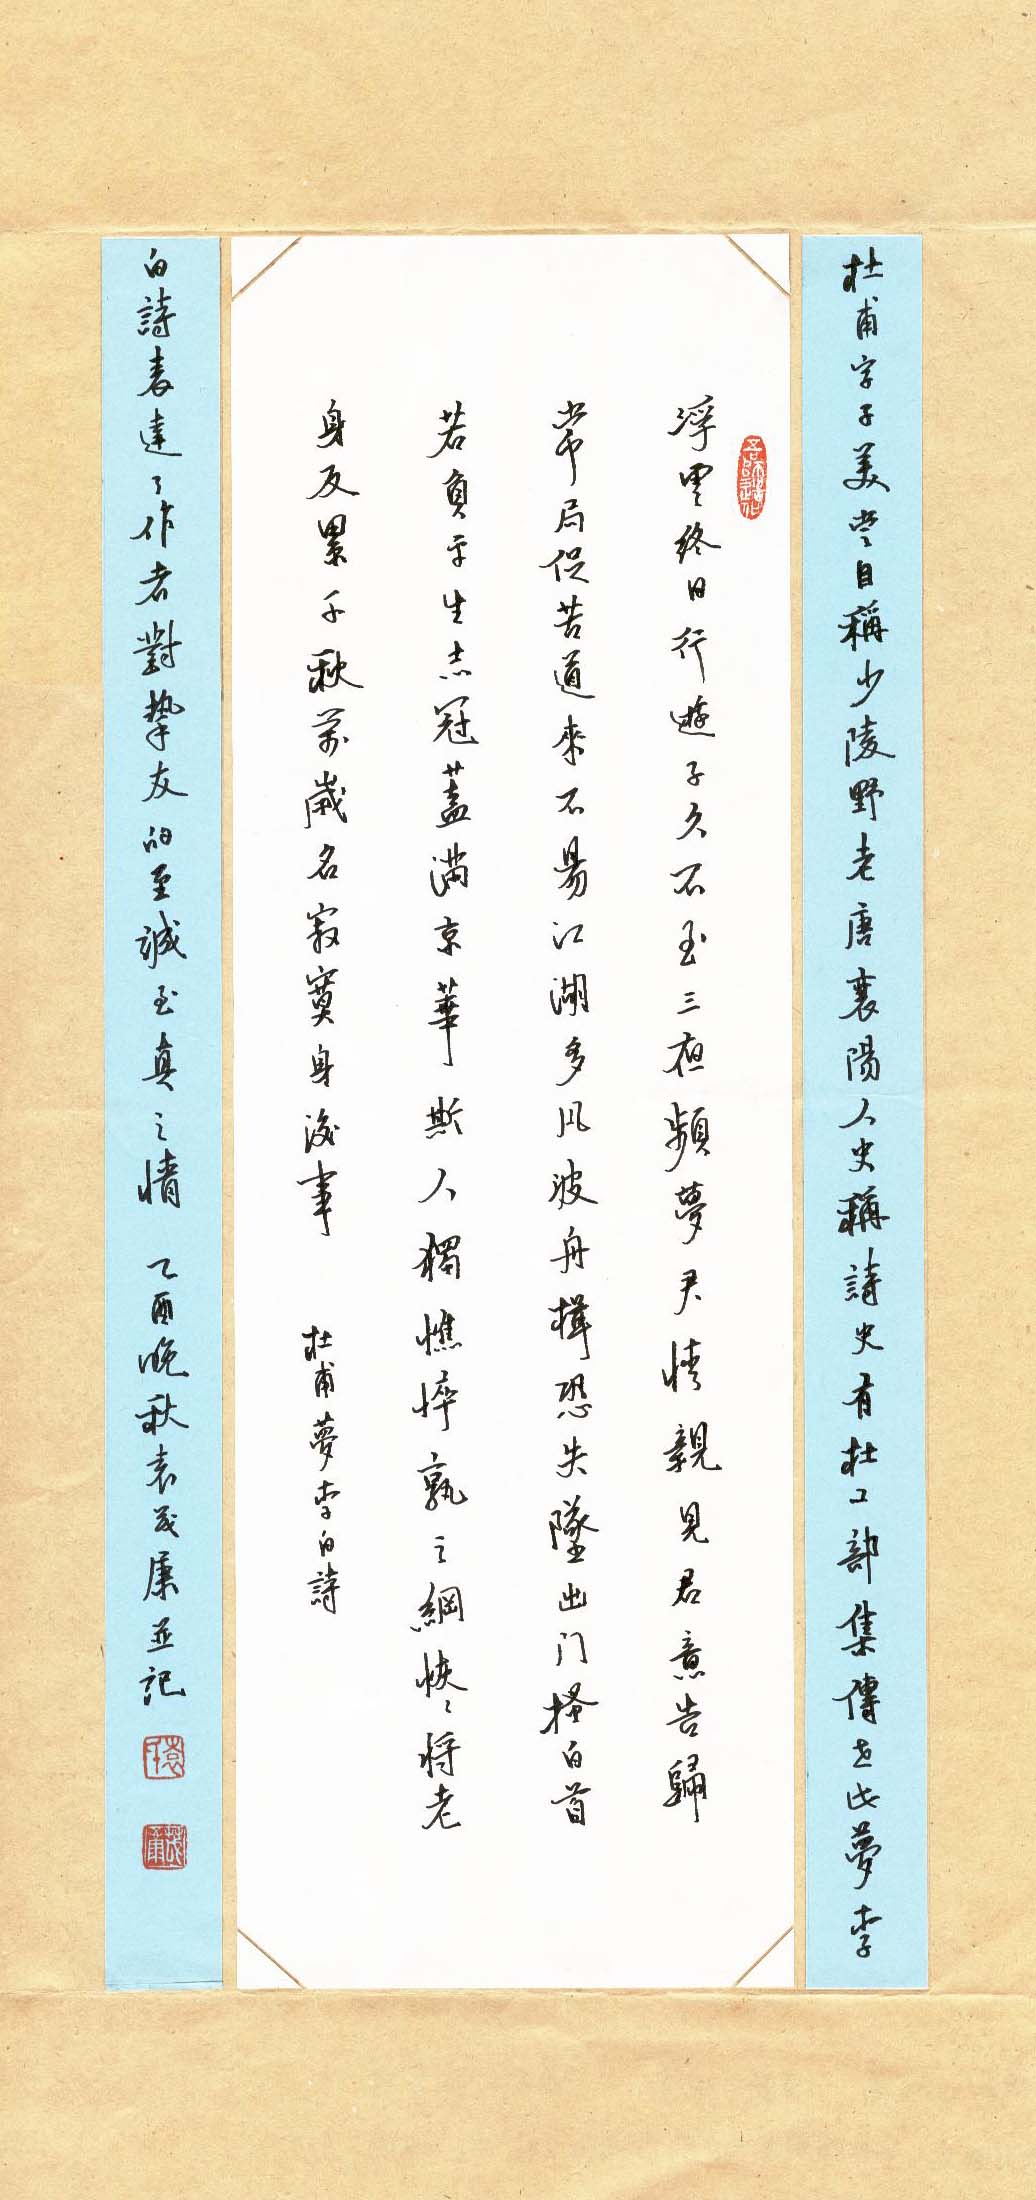 杜甫字子美嘗自稱少陵野老唐襄陽人史稱詩史有杜工部集傳世此夢李
吾師造化
浮雲終日行遊子久不至三夜頻夢君情親見君意告歸
常局促苦道來不易江湖多风波舟楫恐失墜出门搔白首
若負平生志冠蓋滿京華斯人獨憔悴孰云網恢〻将老
身反累千秋萬歲名寂寞身後事 杜甫夢李白詩
白詩表達了作者對摯友的至誠至真之情 乙酉晚秋袁茂康並記